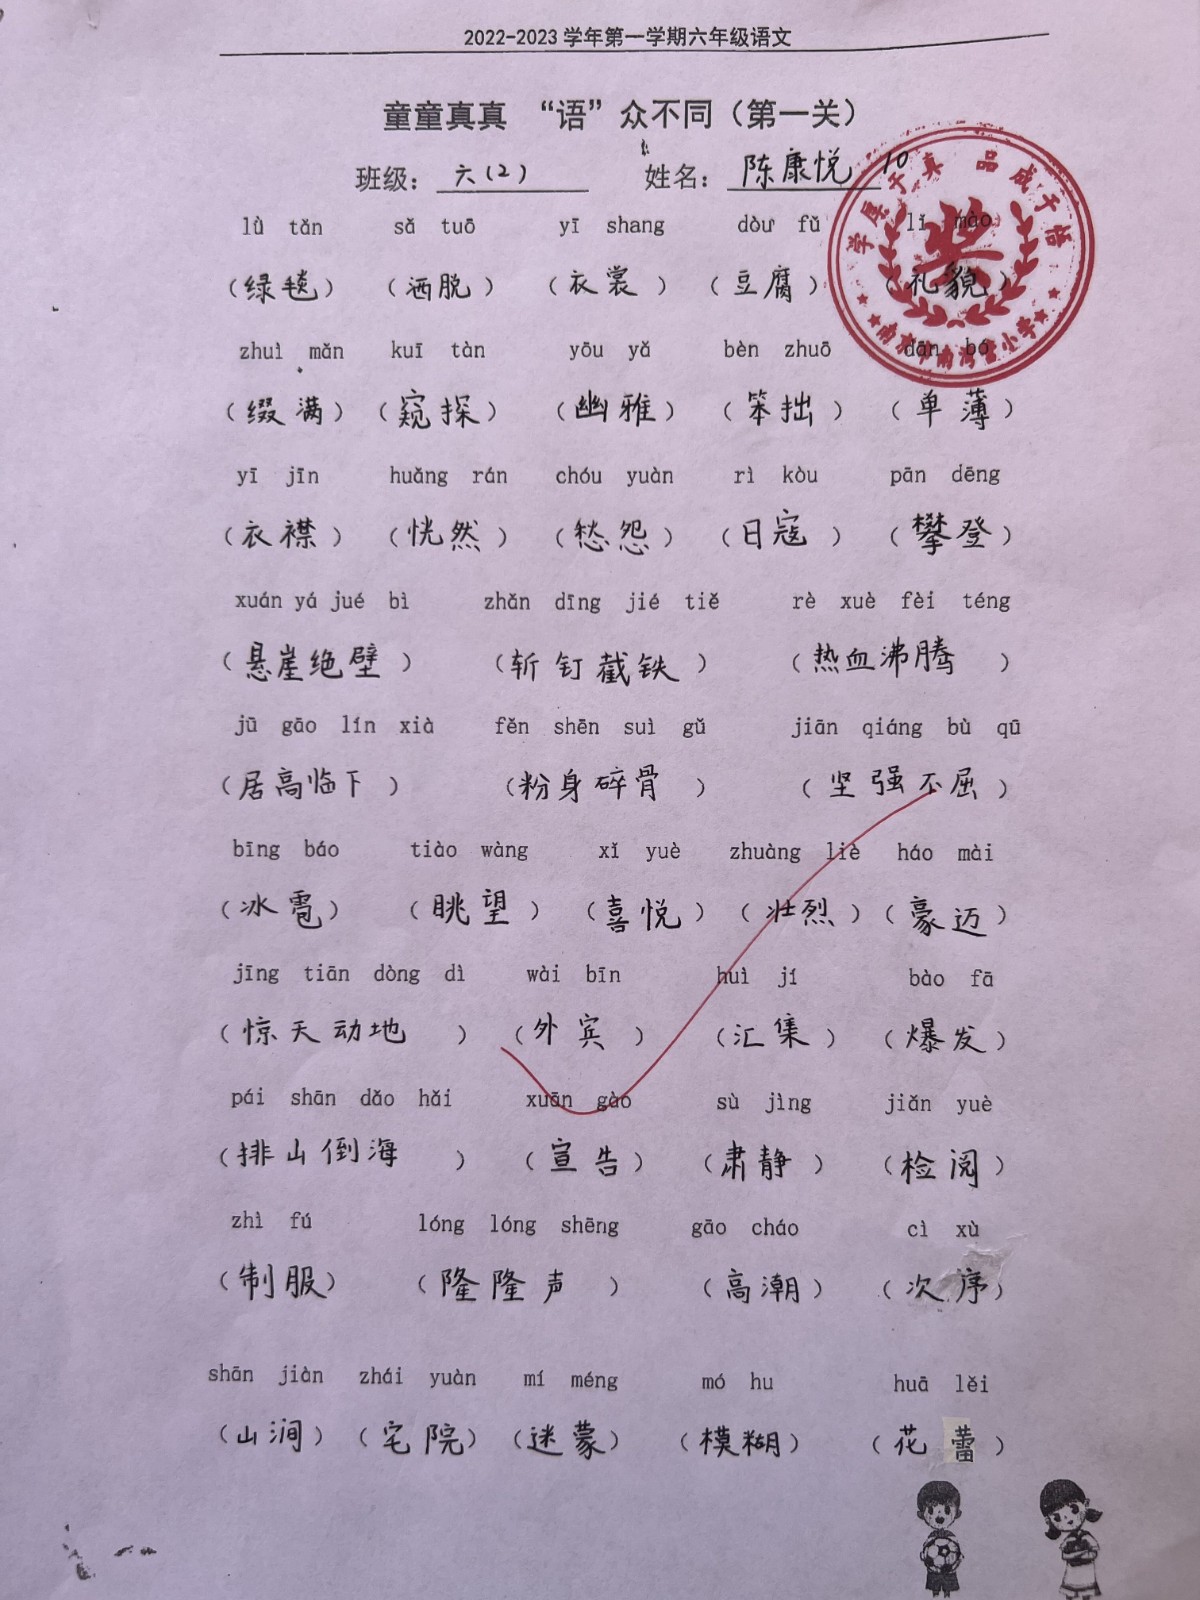 2022-2023 学年第一学期六年级语文
童童真真 “语”众不同（第一关）
班级：六(2) 姓名：陈康悦 10
lù tǎn sǎ tuō yī shang dòu fǔ lǐ mào
（绿毯）（洒脱）（衣裳）（豆腐）（礼貌）
zhuì mǎn kuī tàn yōu yǎ bèn zhuō dān bó
（缀满）（窥探）（幽雅）（笨拙）（单薄）
yī jīn huǎng rán chóu yuàn rì kòu pān dēng
（衣襟）（恍然）（愁怨）（日寇）（攀登）
xuán yá jué bì zhǎn dīng jié tiě rè xuè fèi téng
（悬崖绝壁）（斩钉截铁）（热血沸腾）
jū gāo lín xià fěn shēn suì gǔ jiān qiáng bù qū
（居高临下）（粉身碎骨）（坚强不屈）
bīng báo tiào wàng xǐ yuè zhuàng liè háo mài
（冰雹）（眺望）（喜悦）（壮烈）（豪迈）
jīng tiān dòng dì wài bīn huì jí bào fā
（惊天动地）（外宾）（汇集）（爆发）
pái shān dǎo hǎi xuān gào sù jìng jiǎn yuè
（排山倒海）（宣告）（肃静）（检阅）
zhì fú lóng lóng shēng gāo cháo cì xù
（制服）（隆隆声）（高潮）（次序）
shān jiàn zhái yuàn mí méng mó hu huā lěi
（山涧）（宅院）（迷蒙）（模糊）（花蕾）